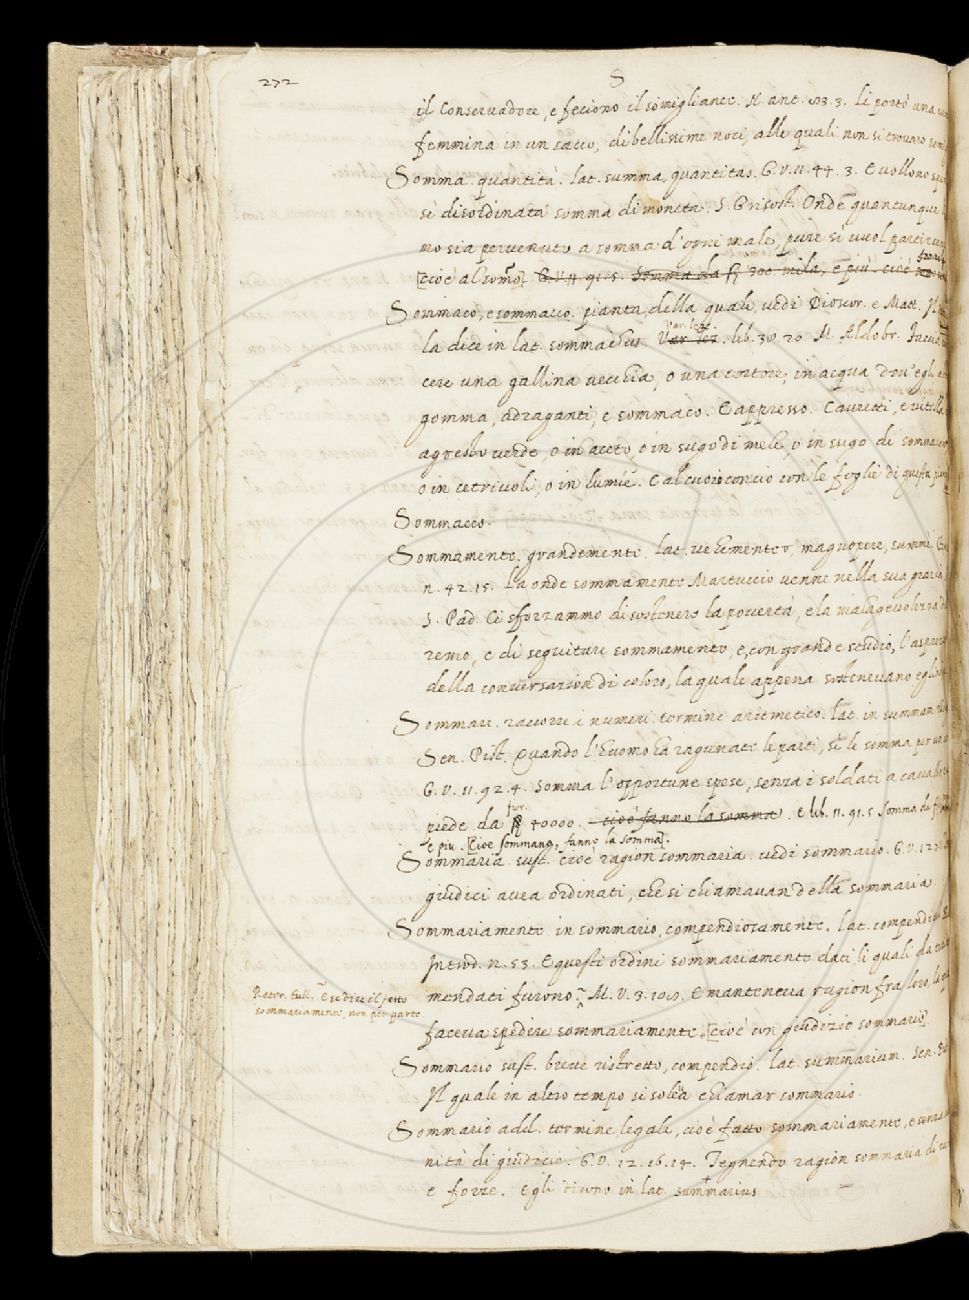 272
S
il Conservadore, e feciono il simigliante. N. ant. 83. 3. Li portò una
femmina in un sacco, di bellissime noci, alle quali non si trovano
Somma. quantità. lat. summa, quantitas. G. V. 11. 44. 3. E vollono
sì disordinata somma di moneta. S. Grisost. Onde quantunque
mo sia pervenuto a somma d'ogni male, pure si vuol partire
[cioè al sommo] G. V. 11. 91. 5. Somma da 300 mila, e più. cioè
Sommaco, e sommacco. pianta, della quale vedi Dioscor. e Matt.
la dice in lat. sommachus. Var. lez. lib. 30. 20. M. Aldobr. Facciasi
cere una gallina vecchia, o una tortore, in acqua dov' egli
gomma, adraganti, e sommaco. E appresso. Cavretti, e vitella
agresto verde, o in aceto, o in sugo di mele, o in sugo di sommaco
o in cetriuoli, o in lumie. E al cuoio concio con le foglie di questa
Sommacco.
Sommamente. grandemente. lat. vehementer, magnopere, summè.
n. 42. 15. La onde sommamente Martuccio venne nella sua grazia
S. Pad. Ci sforzammo di sostenere la povertà, e la malagevolezza
remo, e di seguitare sommamente, e con grande studio, l'
della conversazion di coloro, la quale appena sostenevano
Sommare. raccorre i numeri. termine aritmetico. lat. in summam
Sen. Pist. Quando l'huomo ha ragunate le parti, sì le somma per
G. V. 11. 92. 4. Somma l'opportune spese, senza i soldati a cavallo
fior.
piede da 40000. cioè fanno la somma. e lib. 11. 91. 5. Somma da
e piu. [Cioè sommano, fanno la somma].
Sommaria. sust. cioè ragion sommaria. vedi sommario. G. V. 12.
giudici avea ordinati, che si chiamavan della sommaria
Sommariamente. in sommario, compendiosamente. lat.
Introd. n. 53. E questi ordini sommariamente dati li quali da
Retor. Tull. E se dice il fatto
sommariamente, non per parte
mendati furono. M. V. 3. E manteneva ragion fra loro,
faceva spedire sommariamente. [cioè con giudizio sommario].
Sommario sust. breve ristretto, compendio. lat. summarium. Sen.
Il quale in altro tempo si solea chiamar sommario.
Sommario add. termine legale, cioè fatto sommariamente, e senza
nità di giudicio. G. V. 12. 16. 14. Tegnendo ragion sommaria di
e forze. Egli dicono in lat. summarius